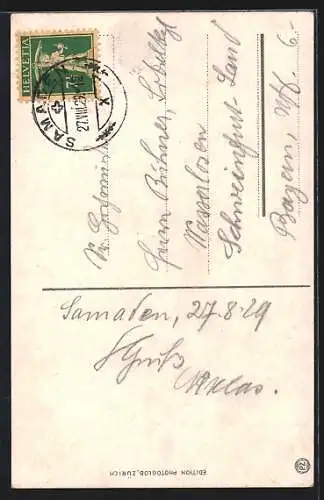 HELVETIA
SAMADEN
27.VIII.29
X
Herrn Bühner,
Wasserlosen
Schweinfurt-Land
Bayern,
6-
Samaden, 27.8.29
Gruß
Niklas.
EDITION PHOTOGLOB, ZÜRICH
PZ